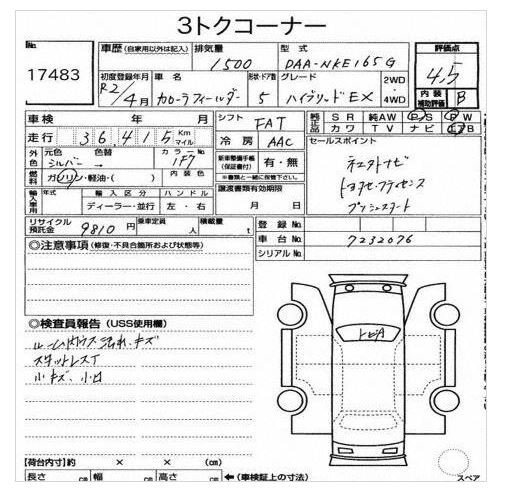 3トクコーナー
No.
17483
車歴(自家用以外は記入)
排気量
1500
型式
DAA-NKE165G
評価点
4.5
初度登録年月
R2/4月
車名
カローラフィールダー
形状・ドア数
5
グレード
ハイブリッドEX
2WD
4WD
内装
補助評価
B
車検 年 月
走行 36,415 Km マイル
シフト
FAT
純正品
SR 純AW PS PW
カワ TV ナビ エアB
外色
元色
シルバー
色替
→
カラーNo.
1F7
冷房
AAC
新車整備手帳
(保証書付)
有・無
※書類と一緒に保管下さい。
セールスポイント
プッシュスタート
燃料
ガソリン・軽油・( )
輸入車用
年式
輸入区分
ハンドル
ディーラー・並行
左・右
譲渡書類有効期限
月 日
リサイクル預託金
9810円
乗車定員
人
積載量
t
登録No.
車台No.
7232076
シリアルNo.
◎注意事項(修復・不具合箇所および状態等)
◎検査員報告(USS使用欄)
ルーム内ウス汚れ、キズ
小キズ、小凹
トビA
【荷台内寸】約 × × (cm)
長さ cm 幅 cm 高さ cm
←(車検証上の寸法)
スペア